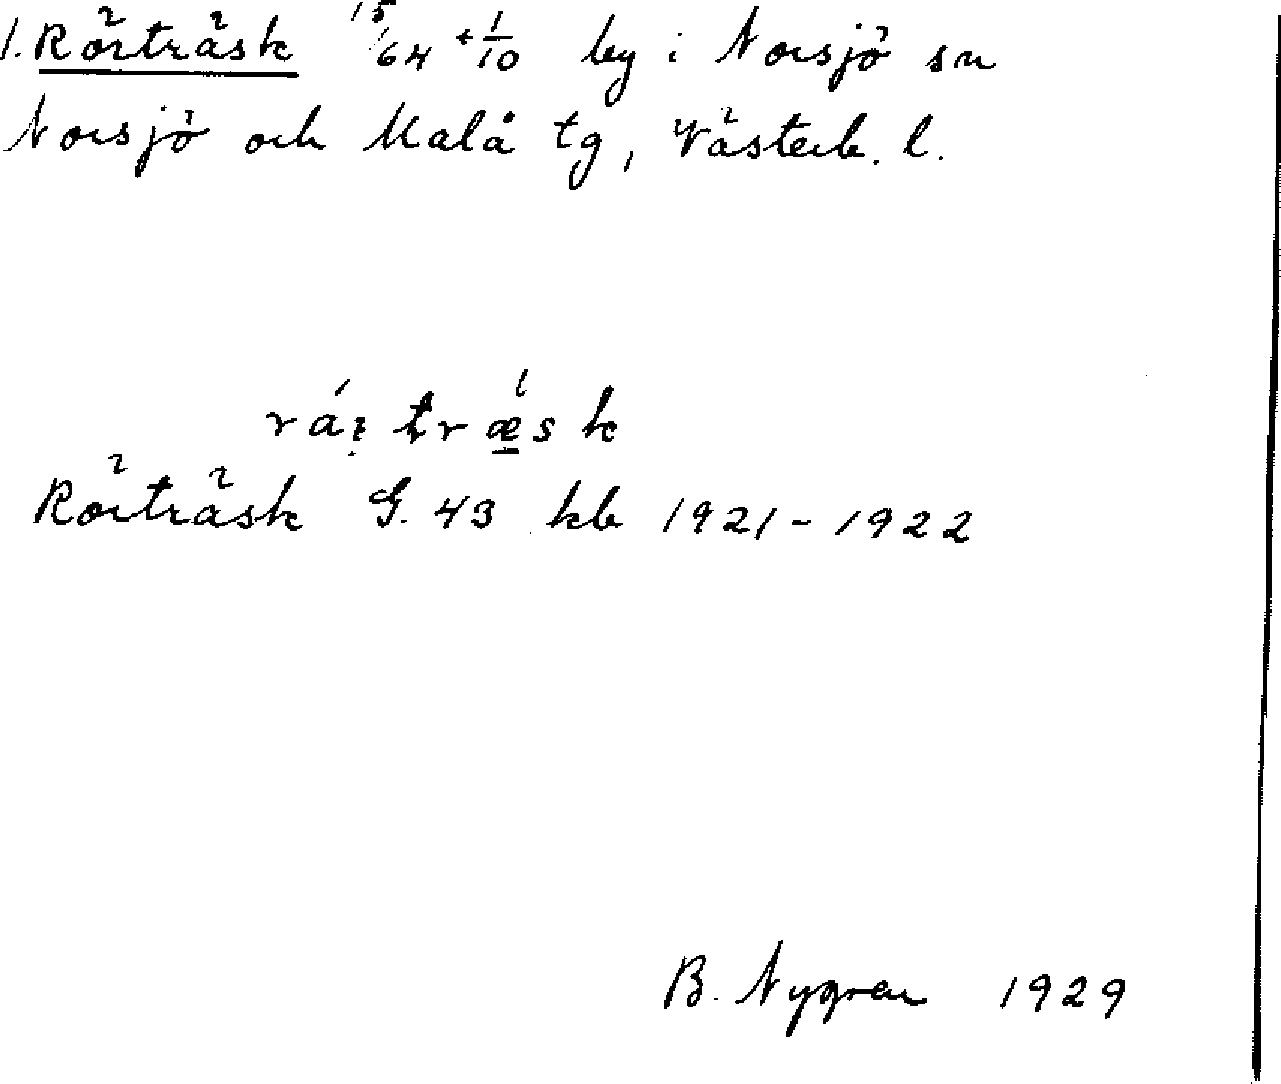 1. Rörträsk 15/64 + 1/10 by i Norsjö sn
Norsjö och Malå tg, Västerb. l.
träsk
Rörträsk G. 43 kb 1921-1922
B. Nygren 1929